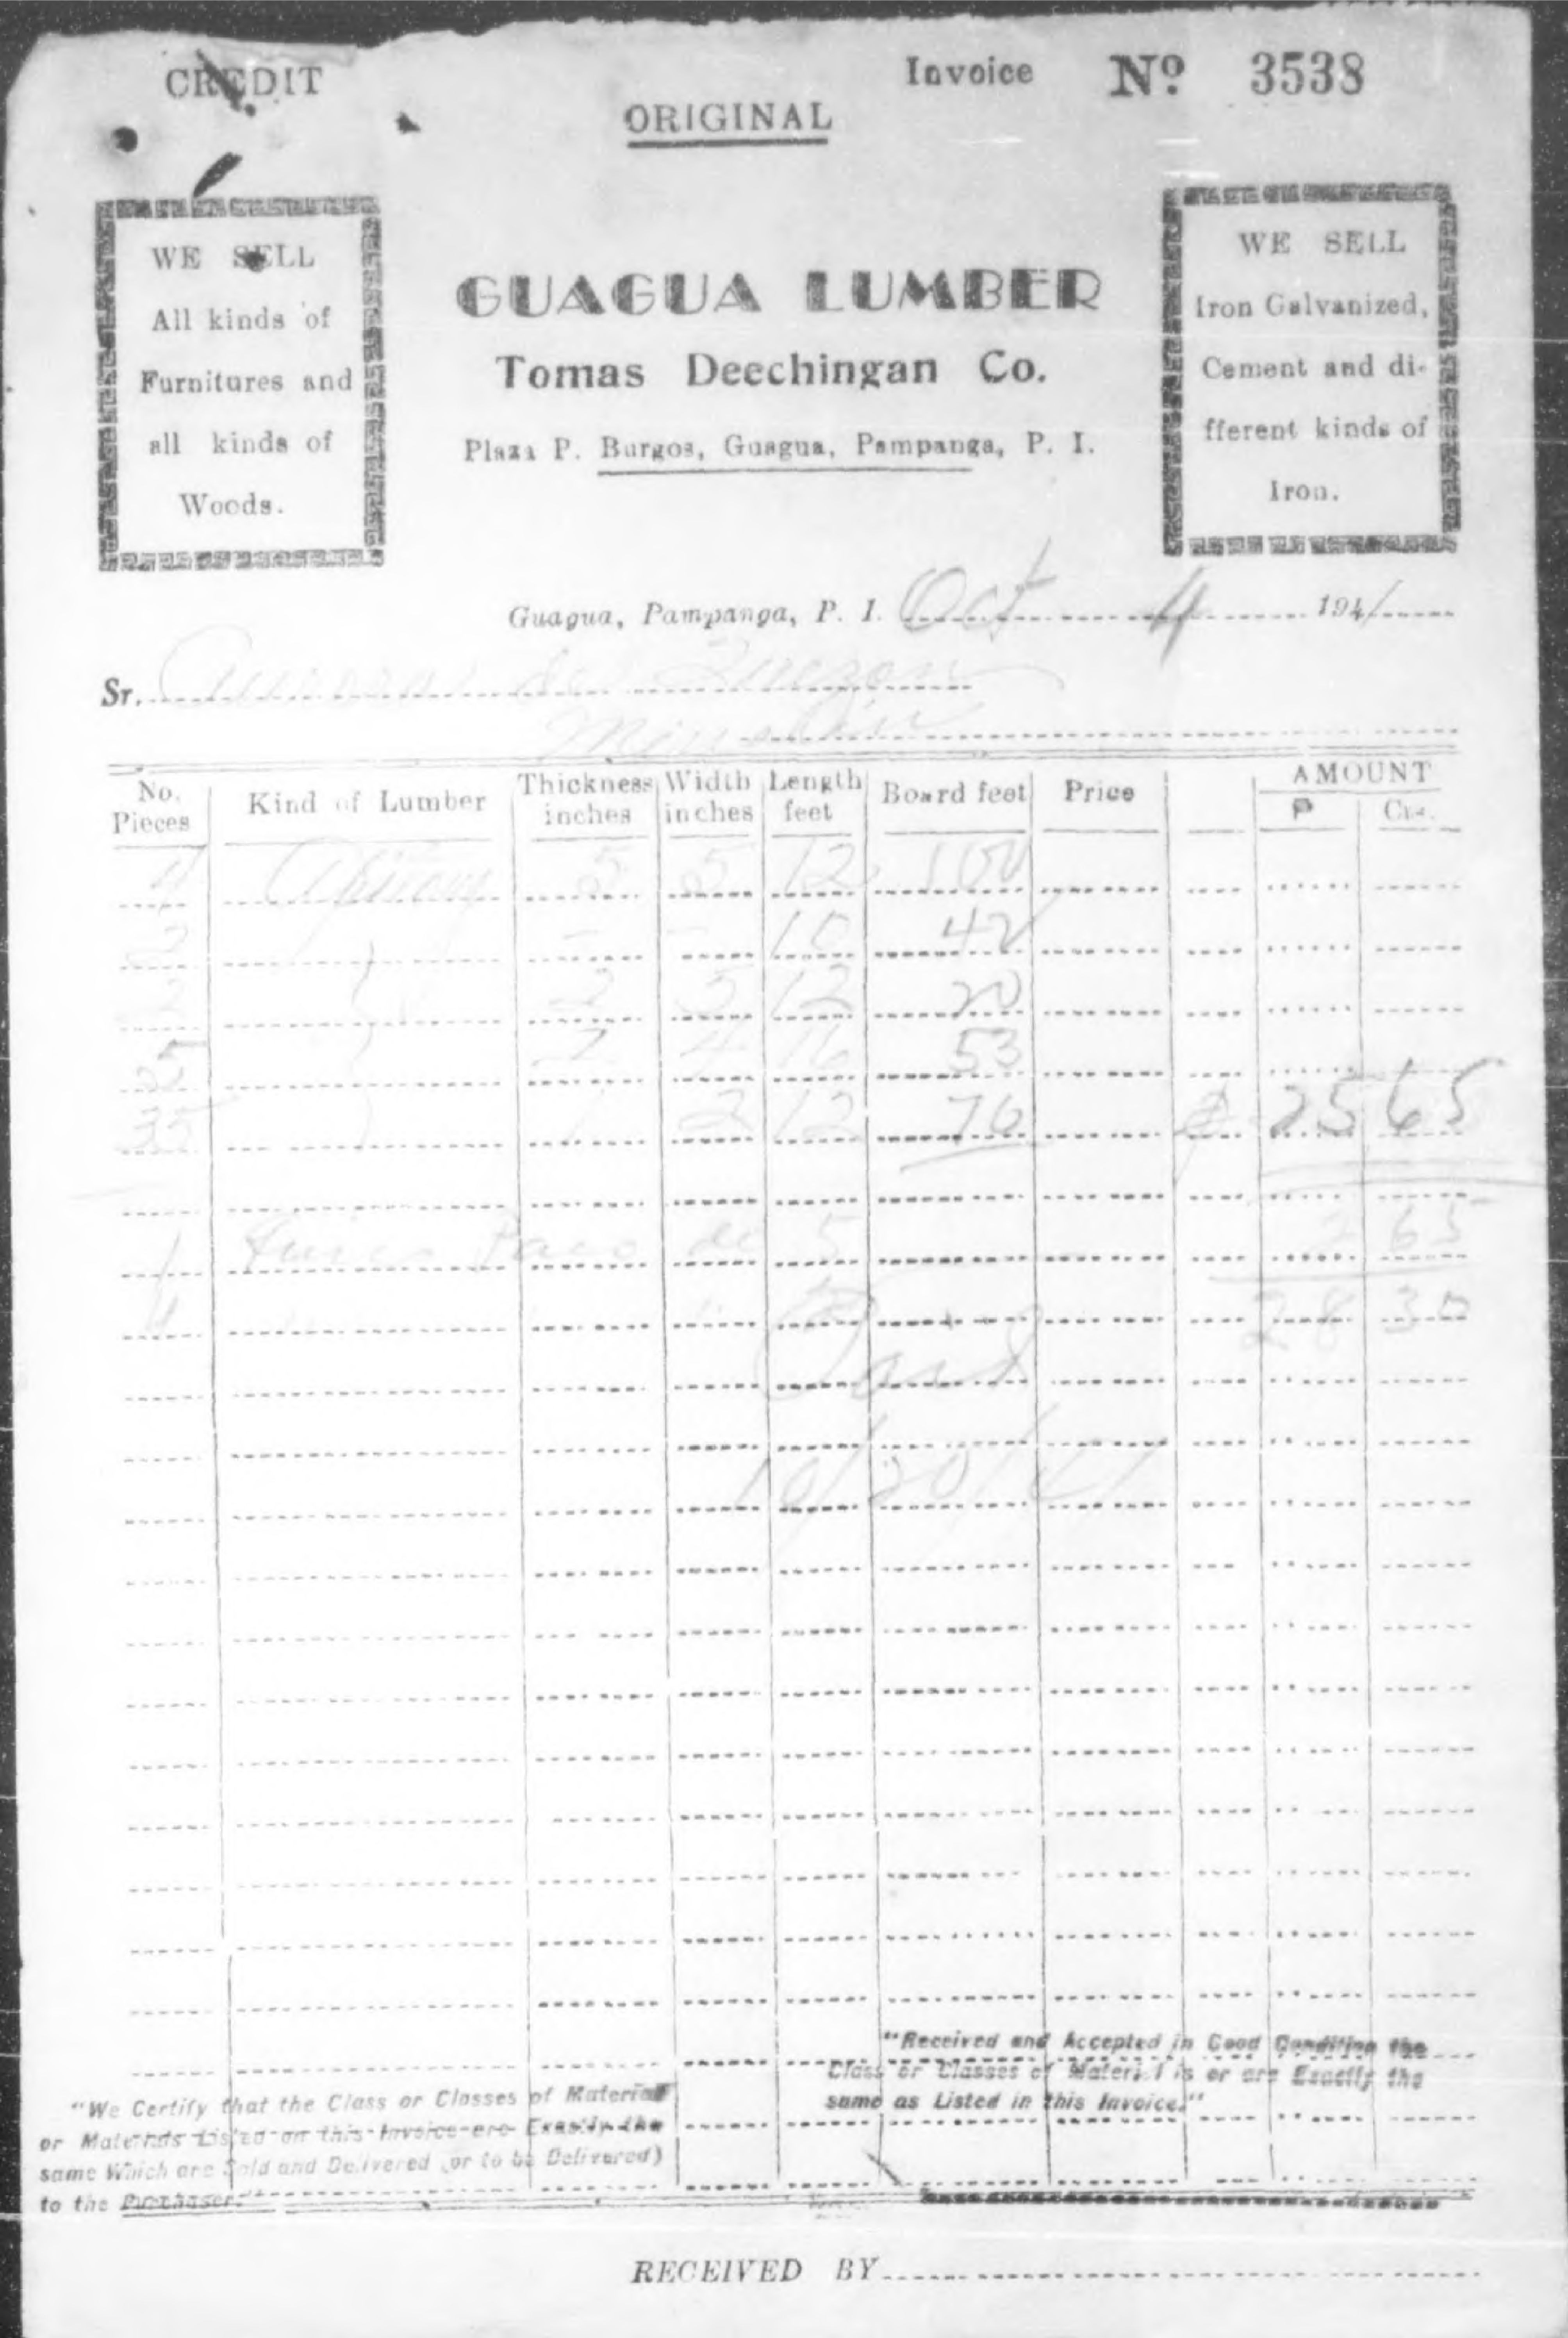 CREDIT
Invoice Nº 3538
ORIGINAL
WE SELL
All kinds of
Furnitures and
all kinds of
Woods.
GUAGUA LUMBER
Tomas Deechingan Co.
Plaza P. Burgos, Guagua, Pampanga, P. I.
WE SELL
Iron Galvanized,
Cement and di-
fferent kinds of
Iron.
Guagua, Pampanga, P. I. Oct 4 1941
Sr. Aurora de Quezon
No. Pieces Kind of Lumber Thickness inches Width inches Length feet Board feet Price AMOUNT ₱ Cts.
4 Apitong 5 5 12 100
2 10 42
2 2 5 12 20
5 2 4 16 53
1 2 12 76 25 65
1 de 5 2 65
28 30
Paid
10/20/41
"Received and Accepted in Good Condition the
Class or Classes of Material is or are Exactly the
same as Listed in this Invoice."
"We Certify that the Class or Classes of Material
or Materials Listed on this Invoice are Exactly the
same Which are Sold and Delivered (or to be Delivered)
to the Purchaser."
RECEIVED BY